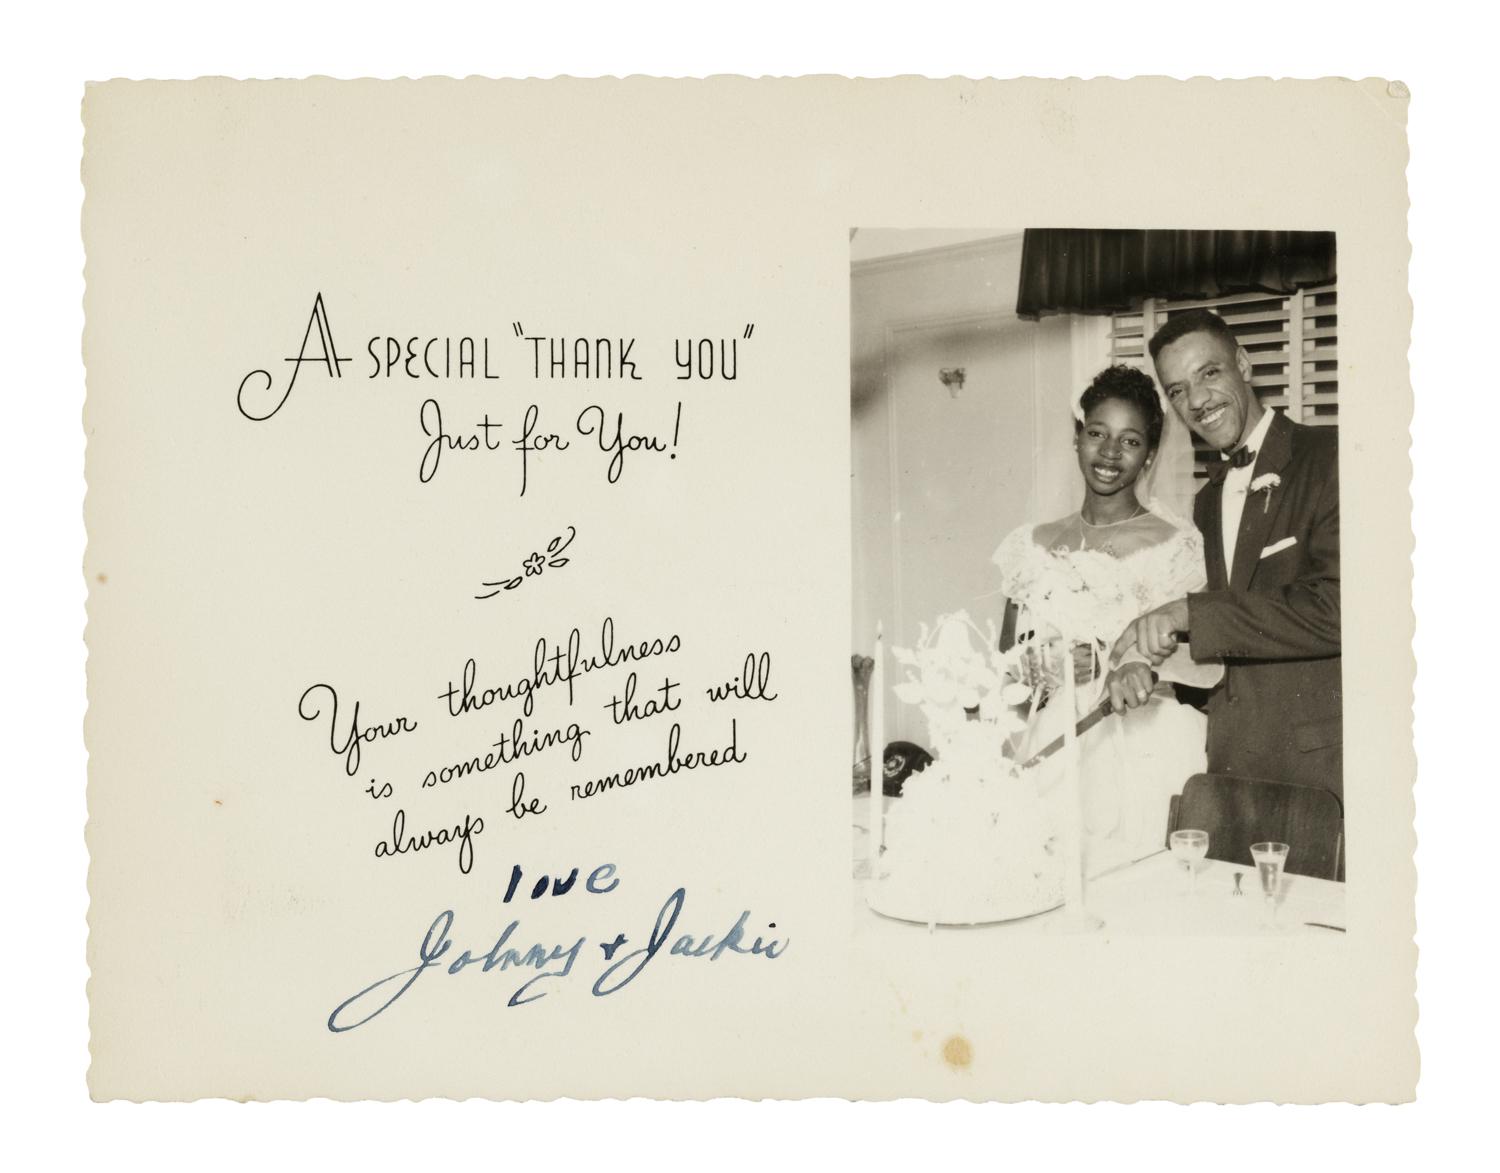 A SPECIAL "THANK YOU"
Just for You!
Your thoughtfulness
is something that will
always be remembered
love
Johnny + Jackie